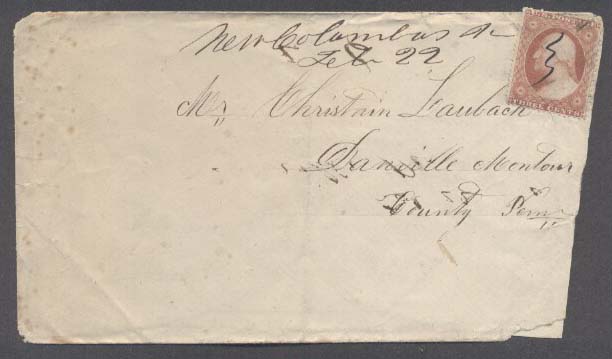 New Columbus Pa
Feb 22
U.S. POSTAGE
THREE CENTS
Mr Christain Laubach
Danville Montour
County Penn